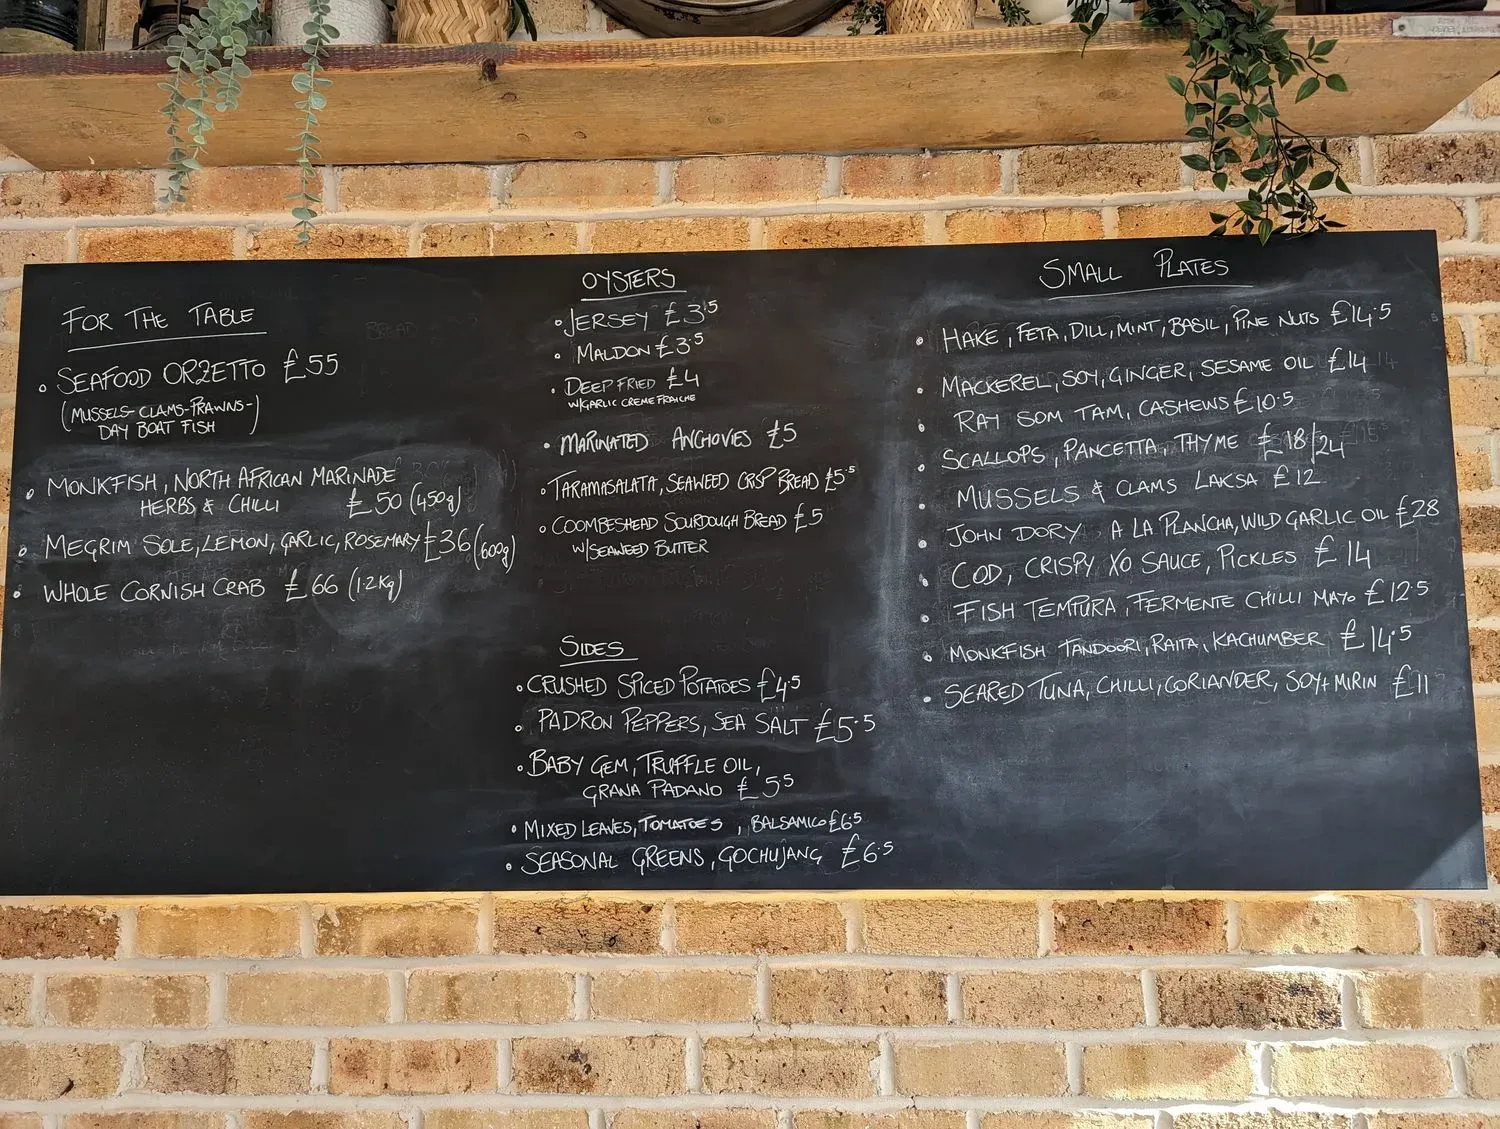 FOR THE TABLE
SEAFOOD ORZETTO £55
(MUSSELS-CLAMS-PRAWNS-)
DAY BOAT FISH
MONKFISH, NORTH AFRICAN MARINADE
HERBS & CHILLI £50 (450g)
MEGRIM SOLE, LEMON, GARLIC, ROSEMARY £36 (600g)
WHOLE CORNISH CRAB £66 (1.2Kg)
OYSTERS
JERSEY £3.5
MALDON £3.5
DEEP FRIED £4
W/GARLIC CREME FRAICHE
MARINATED ANCHOVIES £5
TARAMASALATA, SEAWEED CRSP BREAD £5.5
COOMBESHEAD SOURDOUGH BREAD £5
W/SEAWEED BUTTER
SIDES
CRUSHED SPICED POTATOES £4.5
PADRON PEPPERS, SEA SALT £5.5
BABY GEM, TRUFFLE OIL,
GRANA PADANO £5.5
MIXED LEAVES, TOMATOES, BALSAMICO £6.5
SEASONAL GREENS, GOCHUJANG £6.5
SMALL PLATES
HAKE, FETA, DILL, MINT, BASIL, PINE NUTS £14.5
MACKEREL, SOY, GINGER, SESAME OIL £14
RAY SOM TAM, CASHEWS £10.5
SCALLOPS, PANCETTA, THYME £18/24
MUSSELS & CLAMS LAKSA £12
JOHN DORY A LA PLANCHA, WILD GARLIC OIL £28
COD, CRISPY XO SAUCE, PICKLES £14
FISH TEMPURA, FERMENTE CHILLI MAYO £12.5
MONKFISH TANDOORI, RAITA, KACHUMBER £14.5
SEARED TUNA, CHILLI, CORIANDER, SOY + MIRIN £11